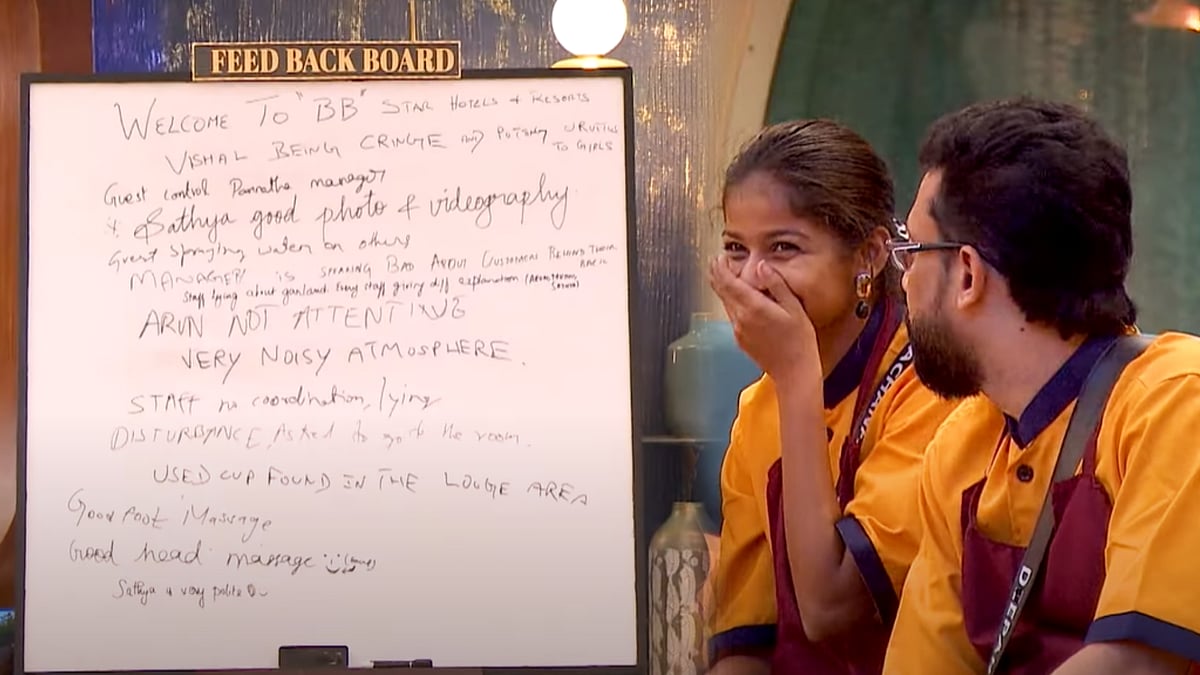 FEED BACK BOARD
WELCOME TO "BB" STAR HOTELS & RESORTS
VISHAL BEING CRINGE AND PUTTING URUTTUS TO GIRLS
Guest control Pannatha manager
* Sathya good photo & videography
Guest spraying water on others
MANAGER IS SPEAKING BAD ABOUT CUSTOMERS BEHIND THEIR BACK
Staff lying about garland. Every staff giving diff explanation
ARUN NOT ATTENTIVE
VERY NOISY ATMOSPHERE.
STAFF no coordination, lying
DISTURBANCE, Asked to go to the room.
USED CUP FOUND IN THE LOUGE AREA
Good Foot Massage
Good head massage
Sathya is very polite
ACHANA
DEEPA